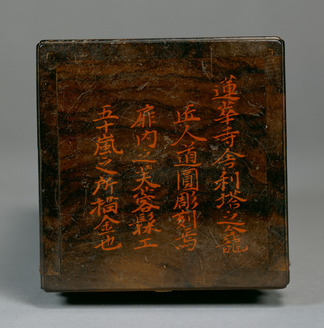 蓮華寺舎利塔之龕
匠人道圓彫刻焉
扉内之芙蓉縣工
五十嵐之所描金也